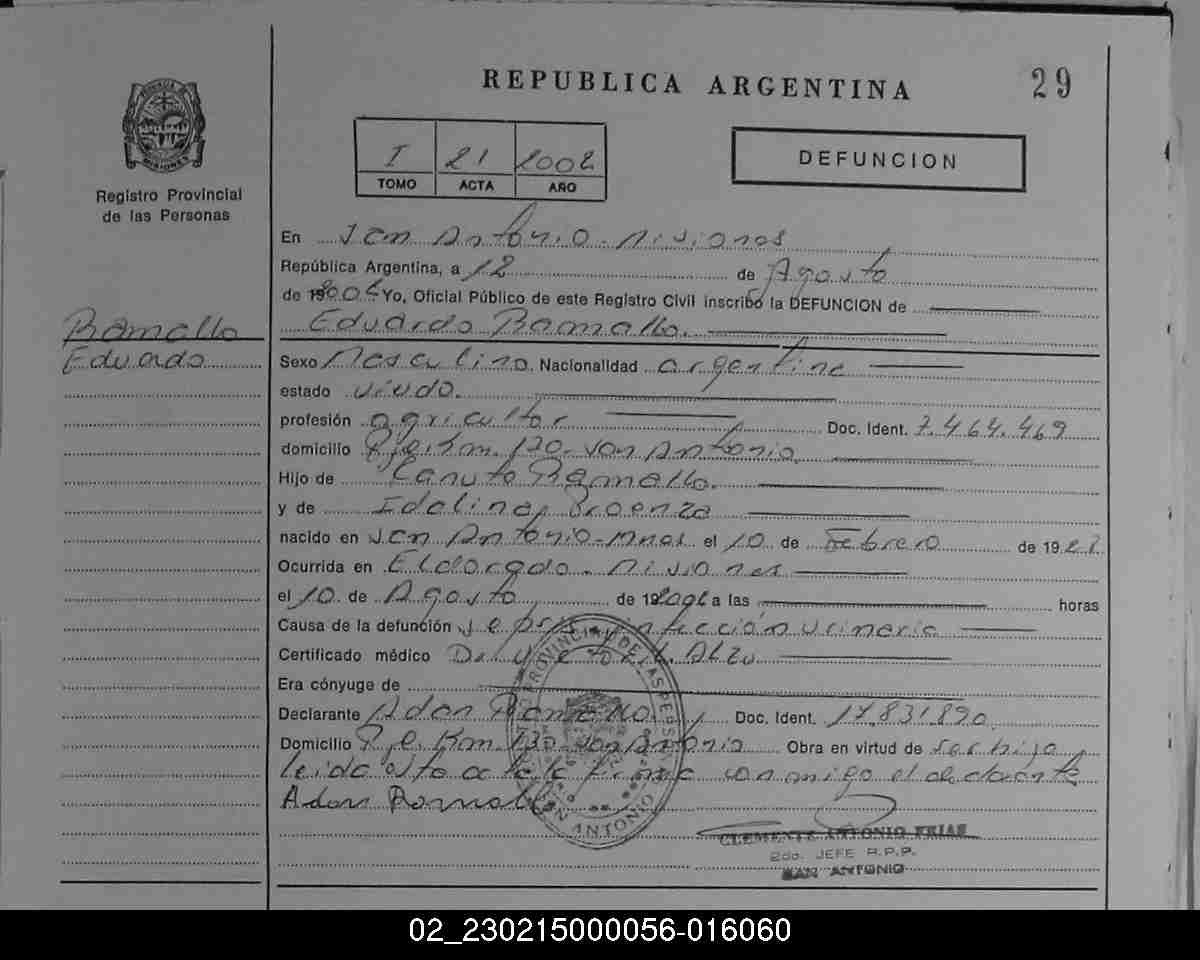 REPUBLICA ARGENTINA
29
PROVINCIA DE MISIONES
Registro Provincial
de las Personas
I 21 2002
TOMO ACTA AÑO
DEFUNCION
En San Antonio - Misiones
República Argentina, a 12 de Agosto
de 2002 Yo, Oficial Público de este Registro Civil inscribo la DEFUNCION de
Eduardo Ramallo.
Ramallo
Eduardo
Sexo Masculino. Nacionalidad argentina
estado viudo.
profesión agricultor Doc. Ident. 7.464.469
domicilio Pje. Km. 130 - San Antonio
Hijo de Canuto Ramallo.
y de Idolina Proenza
nacido en San Antonio - Mnes el 10 de Febrero de 19
Ocurrida en Eldorado - Misiones
el 10 de Agosto de 2002 a las horas
Causa de la defunción Sepsis, infección urinaria
Certificado médico
Era cónyuge de
Declarante Adan Ramallo Doc. Ident. 17.831.890
Domicilio Pje. Km. 130 San Antonio Obra en virtud de ser hijo
leida esta acta la firma conmigo el declarante
Adan Ramallo
REGISTRO PROVINCIAL DE LAS PERSONAS
SAN ANTONIO
CLEMENTE ANTONIO FRIAS
2do. JEFE R.P.P.
SAN ANTONIO
02_230215000056-016060